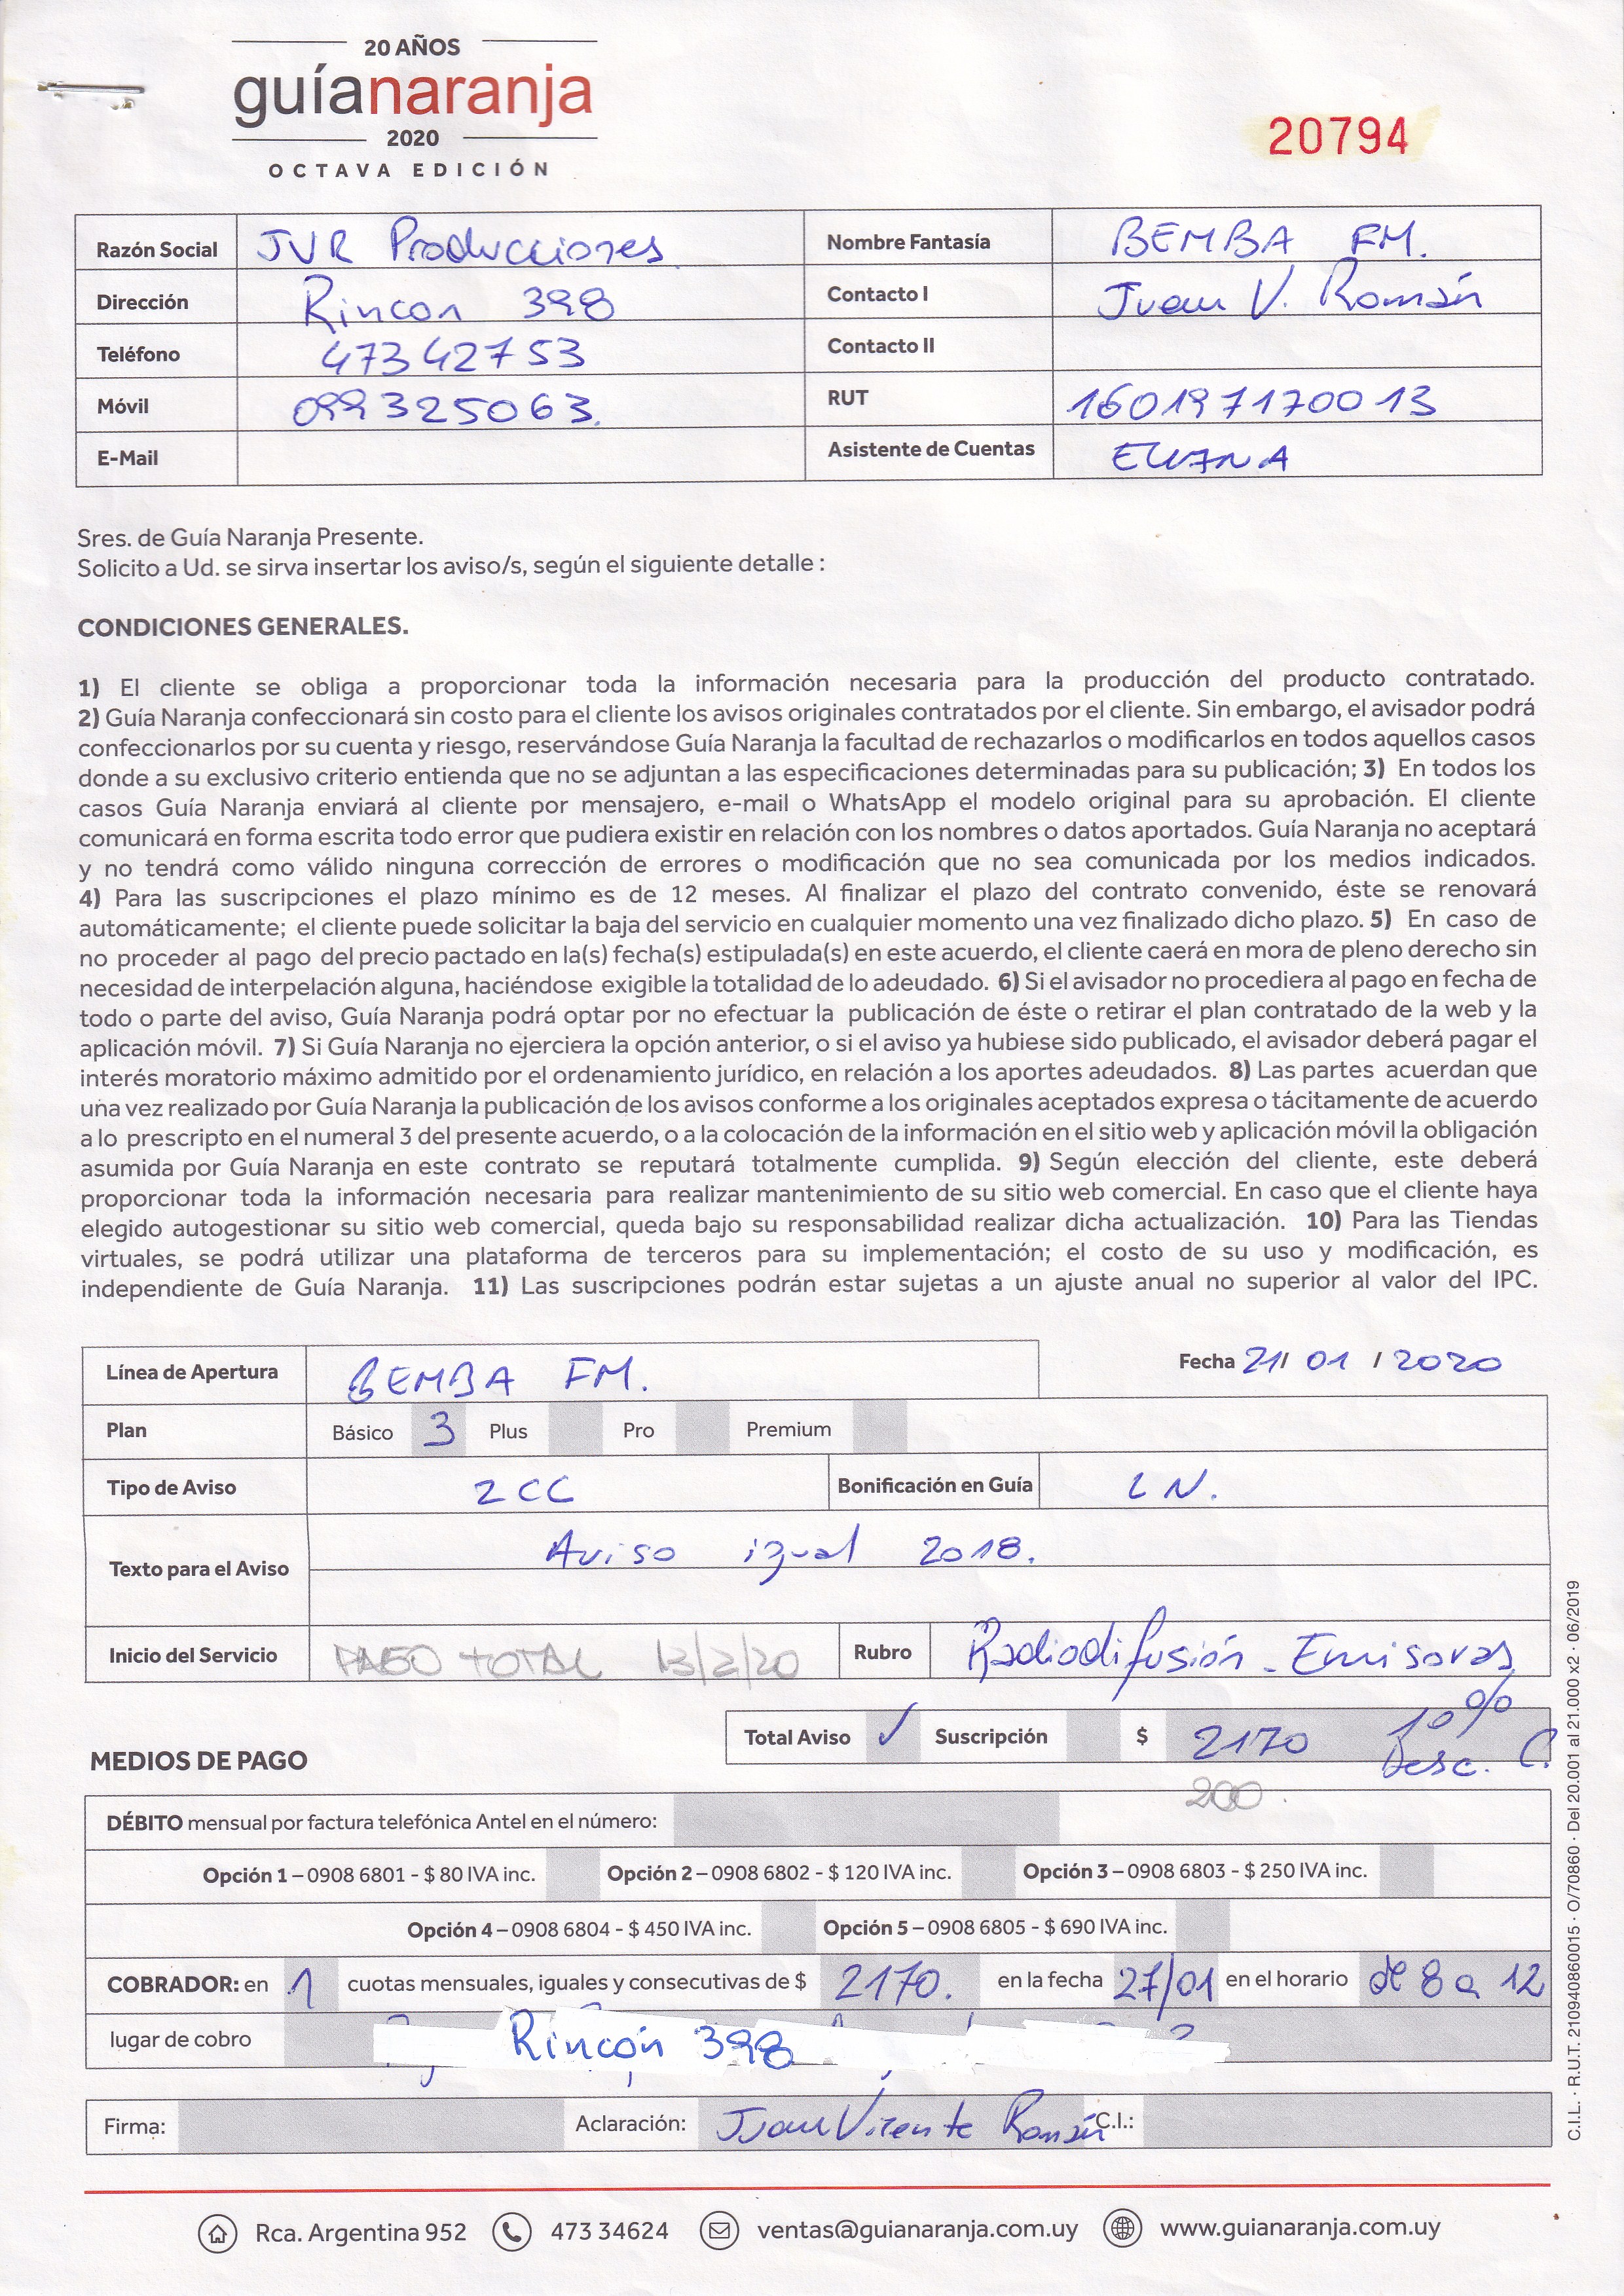 20 AÑOS
guíanaranja
2020
OCTAVA EDICIÓN
20794
Razón Social JVR Producciones Nombre Fantasía BEMBA FM.
Dirección Rincon 398 Contacto I Juan V. Román
Teléfono 473 42753 Contacto II
Móvil 099325063. RUT 160197170013
E-Mail Asistente de Cuentas
Sres. de Guía Naranja Presente.
Solicito a Ud. se sirva insertar los aviso/s, según el siguiente detalle :
CONDICIONES GENERALES.
1) El cliente se obliga a proporcionar toda la información necesaria para la producción del producto contratado.
2) Guía Naranja confeccionará sin costo para el cliente los avisos originales contratados por el cliente. Sin embargo, el avisador podrá
confeccionarlos por su cuenta y riesgo, reservándose Guía Naranja la facultad de rechazarlos o modificarlos en todos aquellos casos
donde a su exclusivo criterio entienda que no se adjuntan a las especificaciones determinadas para su publicación; 3) En todos los
casos Guía Naranja enviará al cliente por mensajero, e-mail o WhatsApp el modelo original para su aprobación. El cliente
comunicará en forma escrita todo error que pudiera existir en relación con los nombres o datos aportados. Guía Naranja no aceptará
y no tendrá como válido ninguna corrección de errores o modificación que no sea comunicada por los medios indicados.
4) Para las suscripciones el plazo mínimo es de 12 meses. Al finalizar el plazo del contrato convenido, éste se renovará
automáticamente; el cliente puede solicitar la baja del servicio en cualquier momento una vez finalizado dicho plazo. 5) En caso de
no proceder al pago del precio pactado en la(s) fecha(s) estipulada(s) en este acuerdo, el cliente caerá en mora de pleno derecho sin
necesidad de interpelación alguna, haciéndose exigible la totalidad de lo adeudado. 6) Si el avisador no procediera al pago en fecha de
todo o parte del aviso, Guía Naranja podrá optar por no efectuar la publicación de éste o retirar el plan contratado de la web y la
aplicación móvil. 7) Si Guía Naranja no ejerciera la opción anterior, o si el aviso ya hubiese sido publicado, el avisador deberá pagar el
interés moratorio máximo admitido por el ordenamiento jurídico, en relación a los aportes adeudados. 8) Las partes acuerdan que
una vez realizado por Guía Naranja la publicación de los avisos conforme a los originales aceptados expresa o tácitamente de acuerdo
a lo prescripto en el numeral 3 del presente acuerdo, o a la colocación de la información en el sitio web y aplicación móvil la obligación
asumida por Guía Naranja en este contrato se reputará totalmente cumplida. 9) Según elección del cliente, este deberá
proporcionar toda la información necesaria para realizar mantenimiento de su sitio web comercial. En caso que el cliente haya
elegido autogestionar su sitio web comercial, queda bajo su responsabilidad realizar dicha actualización. 10) Para las Tiendas
virtuales, se podrá utilizar una plataforma de terceros para su implementación; el costo de su uso y modificación, es
independiente de Guía Naranja. 11) Las suscripciones podrán estar sujetas a un ajuste anual no superior al valor del IPC.
Línea de Apertura BEMBA FM. Fecha 21/ 01 / 2020
Plan Básico 3 Plus Pro Premium
Tipo de Aviso 2 CC Bonificación en Guía LN.
Texto para el Aviso Aviso igual 2018.
Inicio del Servicio PAGO TOTAL 13/2/20 Rubro Radiodifusión - Emisoras
Total Aviso ✓ Suscripción $ 2170 10% Desc. C.
MEDIOS DE PAGO
200
DÉBITO mensual por factura telefónica Antel en el número:
Opción 1 – 0908 6801 - $ 80 IVA inc. Opción 2 – 0908 6802 - $ 120 IVA inc. Opción 3 – 0908 6803 - $ 250 IVA inc.
Opción 4 – 0908 6804 - $ 450 IVA inc. Opción 5 – 0908 6805 - $ 690 IVA inc.
COBRADOR: en 1 cuotas mensuales, iguales y consecutivas de $ 2170. en la fecha 27/01 en el horario de 8 a 12
lugar de cobro Rincón 398
Firma: Aclaración: Juan Vicente Román C.I.:
Rca. Argentina 952 473 34624 ventas@guianaranja.com.uy www.guianaranja.com.uy
C.I.L. · R.U.T. 210940860015 · O/70860 · Del 20.001 al 21.000 x2 · 06/2019